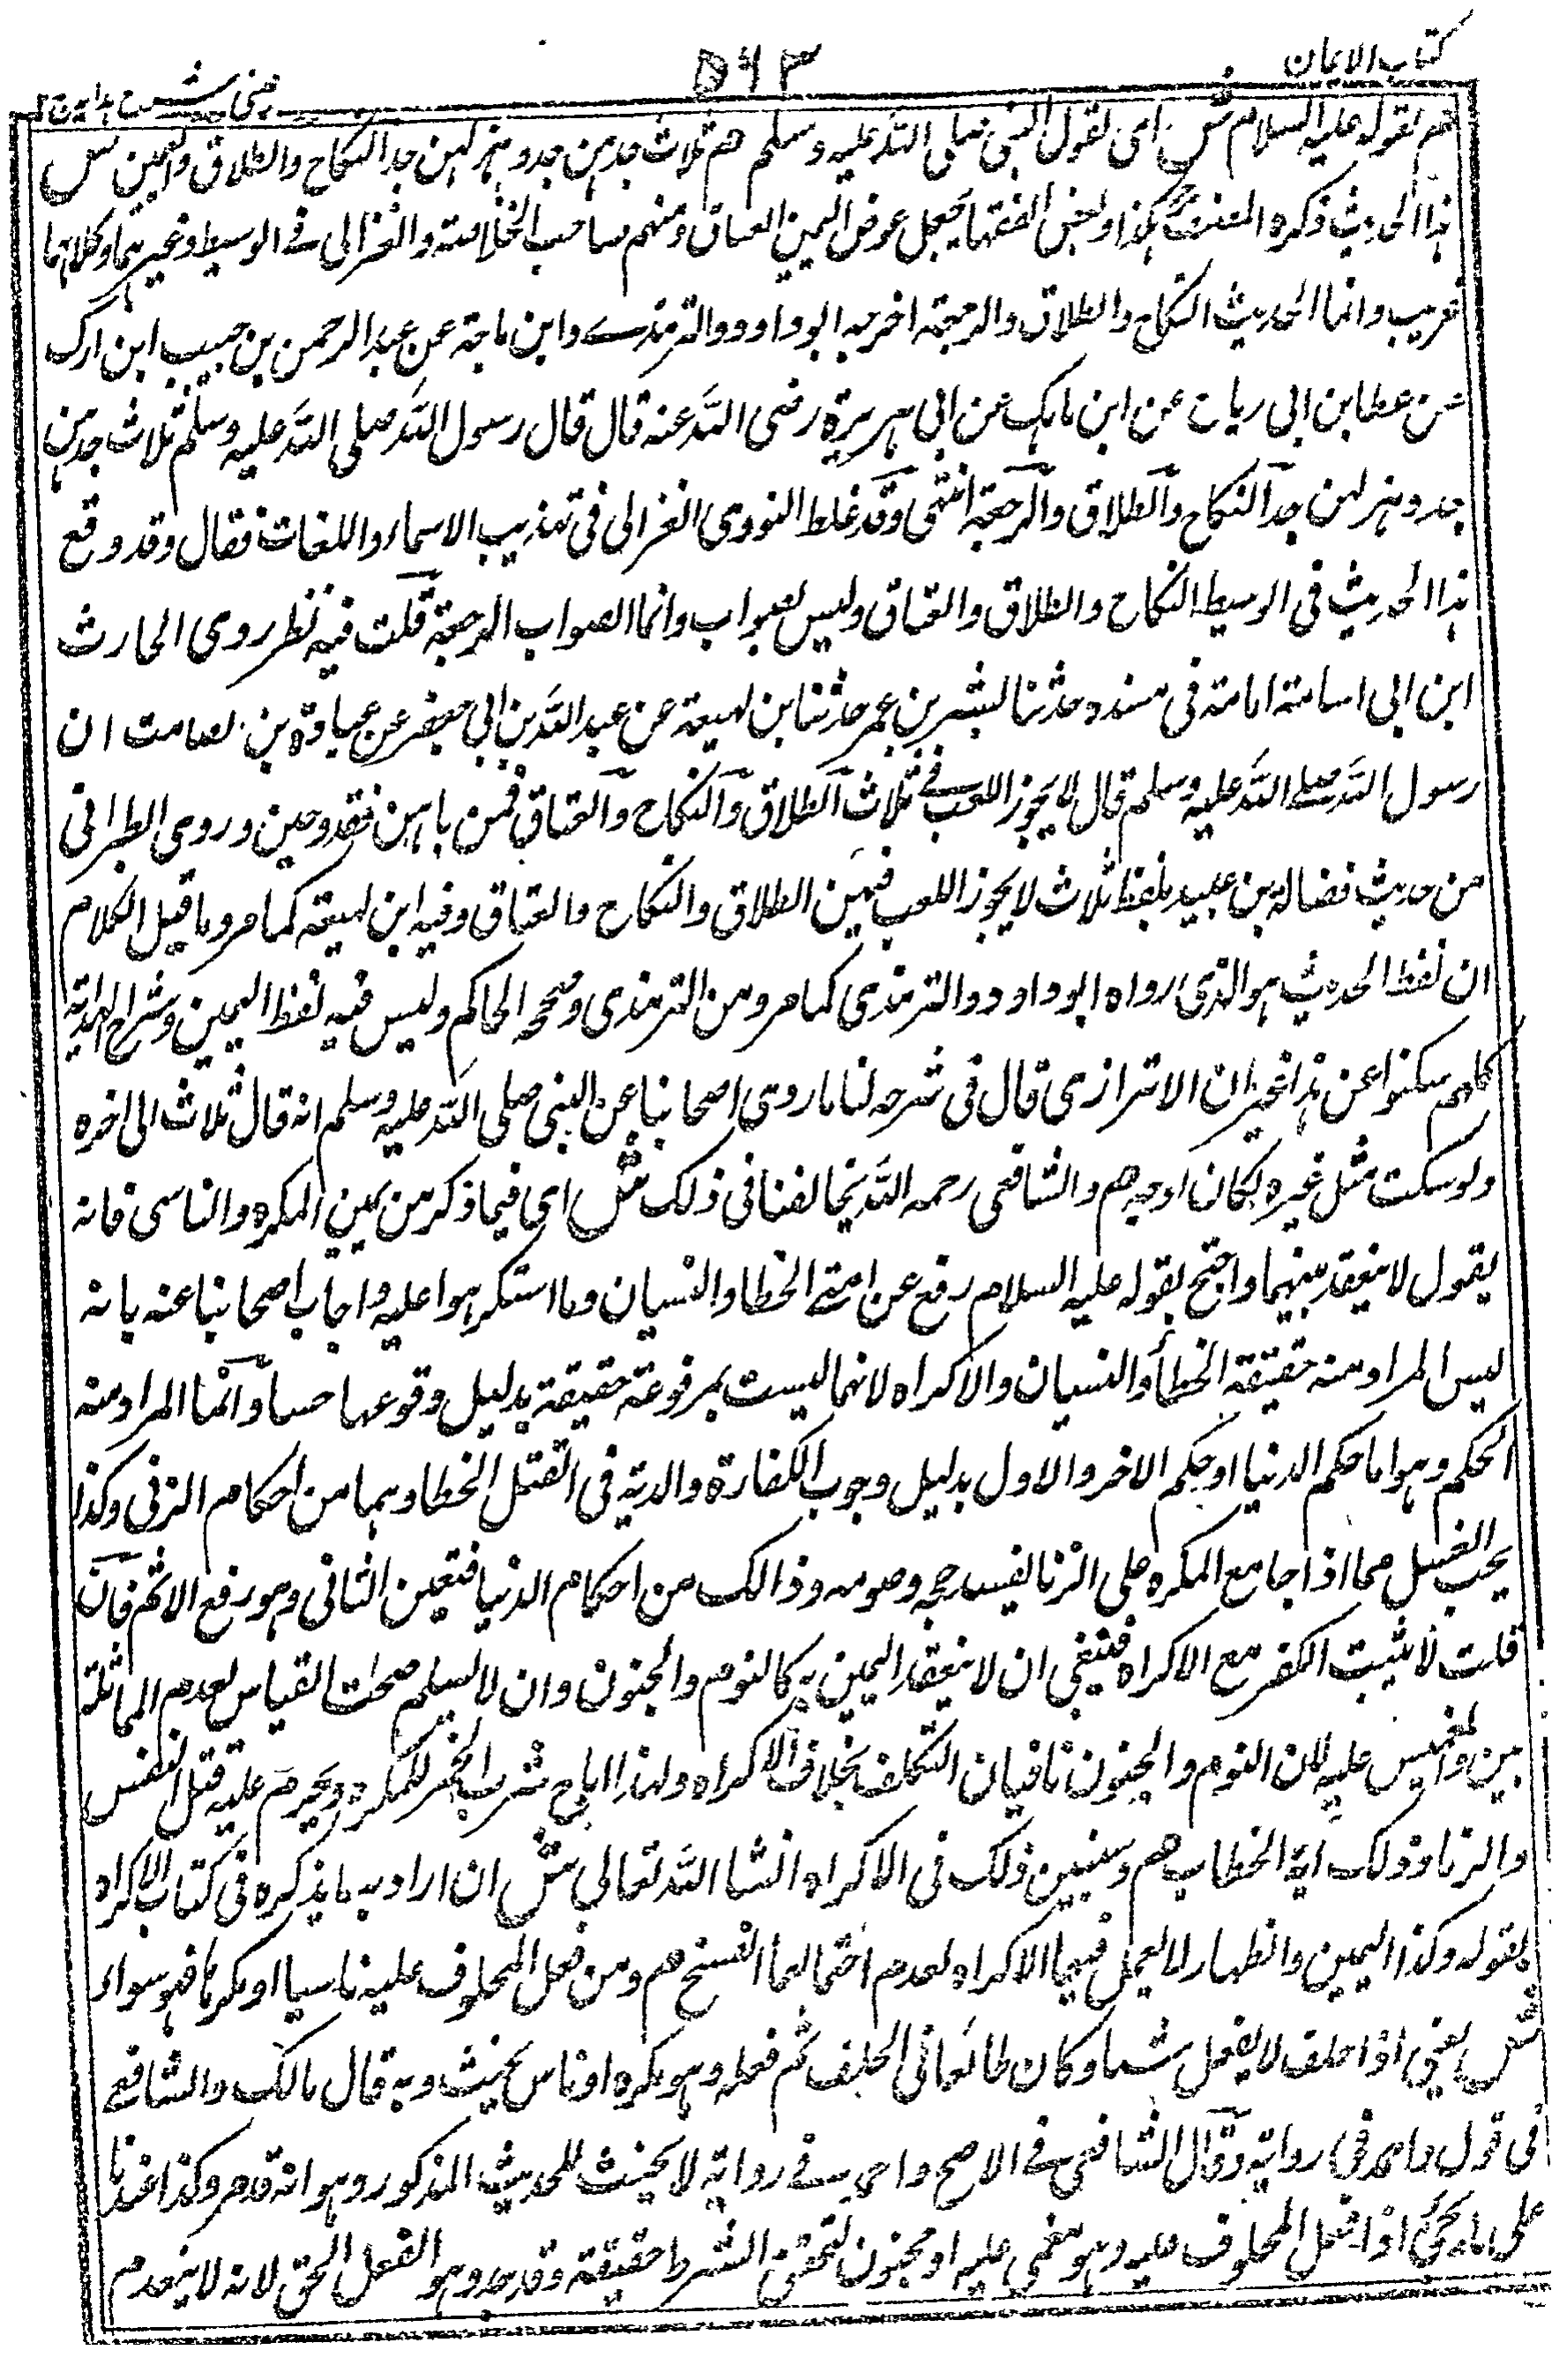 كتاب الايمان
٥٦٣
عينى شرح هداية
هم لقوله عليه السلام ش اى لقول النبى صلى الله عليه وسلم هم ثلاث جدهن جد وهزلهن جد النكاح والطلاق واليمين ش
هذا الحديث ذكره المصنف هكذا وبعض الفقها يجعل عوض اليمين العتاق ومنهم صاحب الخلاصة والغزالى فى الوسيط وغيرهما وكلاهما
غريب وانما الحديث النكاح والطلاق والرجعة اخرجه ابو داود والترمذى وابن ماجة عن عبد الرحمن بن حبيب ابن ارك
عن عطا بن ابى رباح عن ابن ماهك عن ابى هريرة رضى الله عنه قال قال رسول الله صلى الله عليه وسلم ثلاث جدهن
جد وهزلهن جد النكاح والطلاق والرجعة انتهى وقد غلط النووى الغزالى فى تهذيب الاسماء واللغات فقال وقد وقع
هذا الحديث فى الوسيط النكاح والطلاق والعتاق وليس بصواب وانما الصواب الرجعة قلت فيه نظر روى الحارث
ابن ابى اسامة امامة فى مسنده حدثنا بشر بن عمر حدثنا بن لهيعة عن عبد الله بن ابى جعفر عن عبادة بن لصامت ان
رسول الله صلى الله عليه وسلم قال لا يجوز اللعب فى ثلاث الطلاق والنكاح والعتاق فمن باهن فقد وجبن وروى الطبرانى
من حديث فضالة بن عبيد بلفظ ثلاث لا يجوز اللعب فيهن الطلاق والنكاح والعتاق وفيه ابن لهيعة كما مر وما قيل الكلام
ان لفظ الحديث هو الذى رواه ابو داود والترمذى كما مر ومن الترمذى وصححه الحاكم وليس فيه لفظ اليمين وشراح الهداية
كلهم سكنوا عن هذا غير ان الاترازى قال فى شرحه لنا ما روى اصحابنا عن النبى صلى الله عليه وسلم انه قال ثلاث الى اخره
ولو سكت مثل غيره لكان اوجه هم والشافعى رحمه الله يخالفنا فى ذلك ش اى فيما ذكر من يمين المكره والناسى فانه
يقول لا ينعقد يمينهما واحتج بقوله عليه السلام رفع عن امتى الخطا والنسيان وما استكرهوا عليه واجاب اصحابنا عنه بانه
ليس المراد منه حقيقة الخطأ والنسيان والاكراه لانها ليست بمرفوعة حقيقة بدليل وقوعها حسا وانما المراد منه
الحكم وهو اما حكم الدنيا او حكم الاخر والاول بدليل وجوب الكفارة والدية فى القتل الخطا وهما من احكام الزنى وكذا
يجب الغسل مما اذا جامع المكره على الزنا لفيسد حجه وصومه وذالك من احكام الدنيا فتعين الثانى وهو رفع الاثم فان
قلت لا يثبت الكفر مع الاكراه فينبغى ان لا ينعقد اليمين به كالنوم والجنون وان لا يسلم صحت القياس لعدم المماثلة
بين والمقيس عليه لان النوم والجنون نافيان التكلف بخلاف الاكراه ولهذا اباح شرب الخمر للمكره ويحرم عليه قتل النفس
والزنا وذلك اية الخطاب هم وسنبين ذلك فى الاكراه انشا الله تعالى ش ان اراد به ما يذكره فى كتاب الاكراه
بقوله وكذا اليمين والظهار لا يعمل فيهما الاكراه لعدم احتمالهما الفسخ هم ومن فعل المحلوف عليه ناسيا او مكرها فهو سواء
ش يعنى اذا حلف لا يفعل شيئا وكان طائعا فى الحلف ثم فعله وهو مكره او ناس يحنث وبه قال مالك والشافعى
فى قول واحمد فى رواية وقال الشافعى فى الاصح واحمد فى رواية لا يحنث للحديث المذكور وهو انه قد مر وكذا عندنا
على ما يجئ اذا فعل المحلوف عليه وهو مغمى عليه او مجنون لتحقق الشرط حقيقة وقد وجد وهو الفعل الحق لانه لا ينعدم